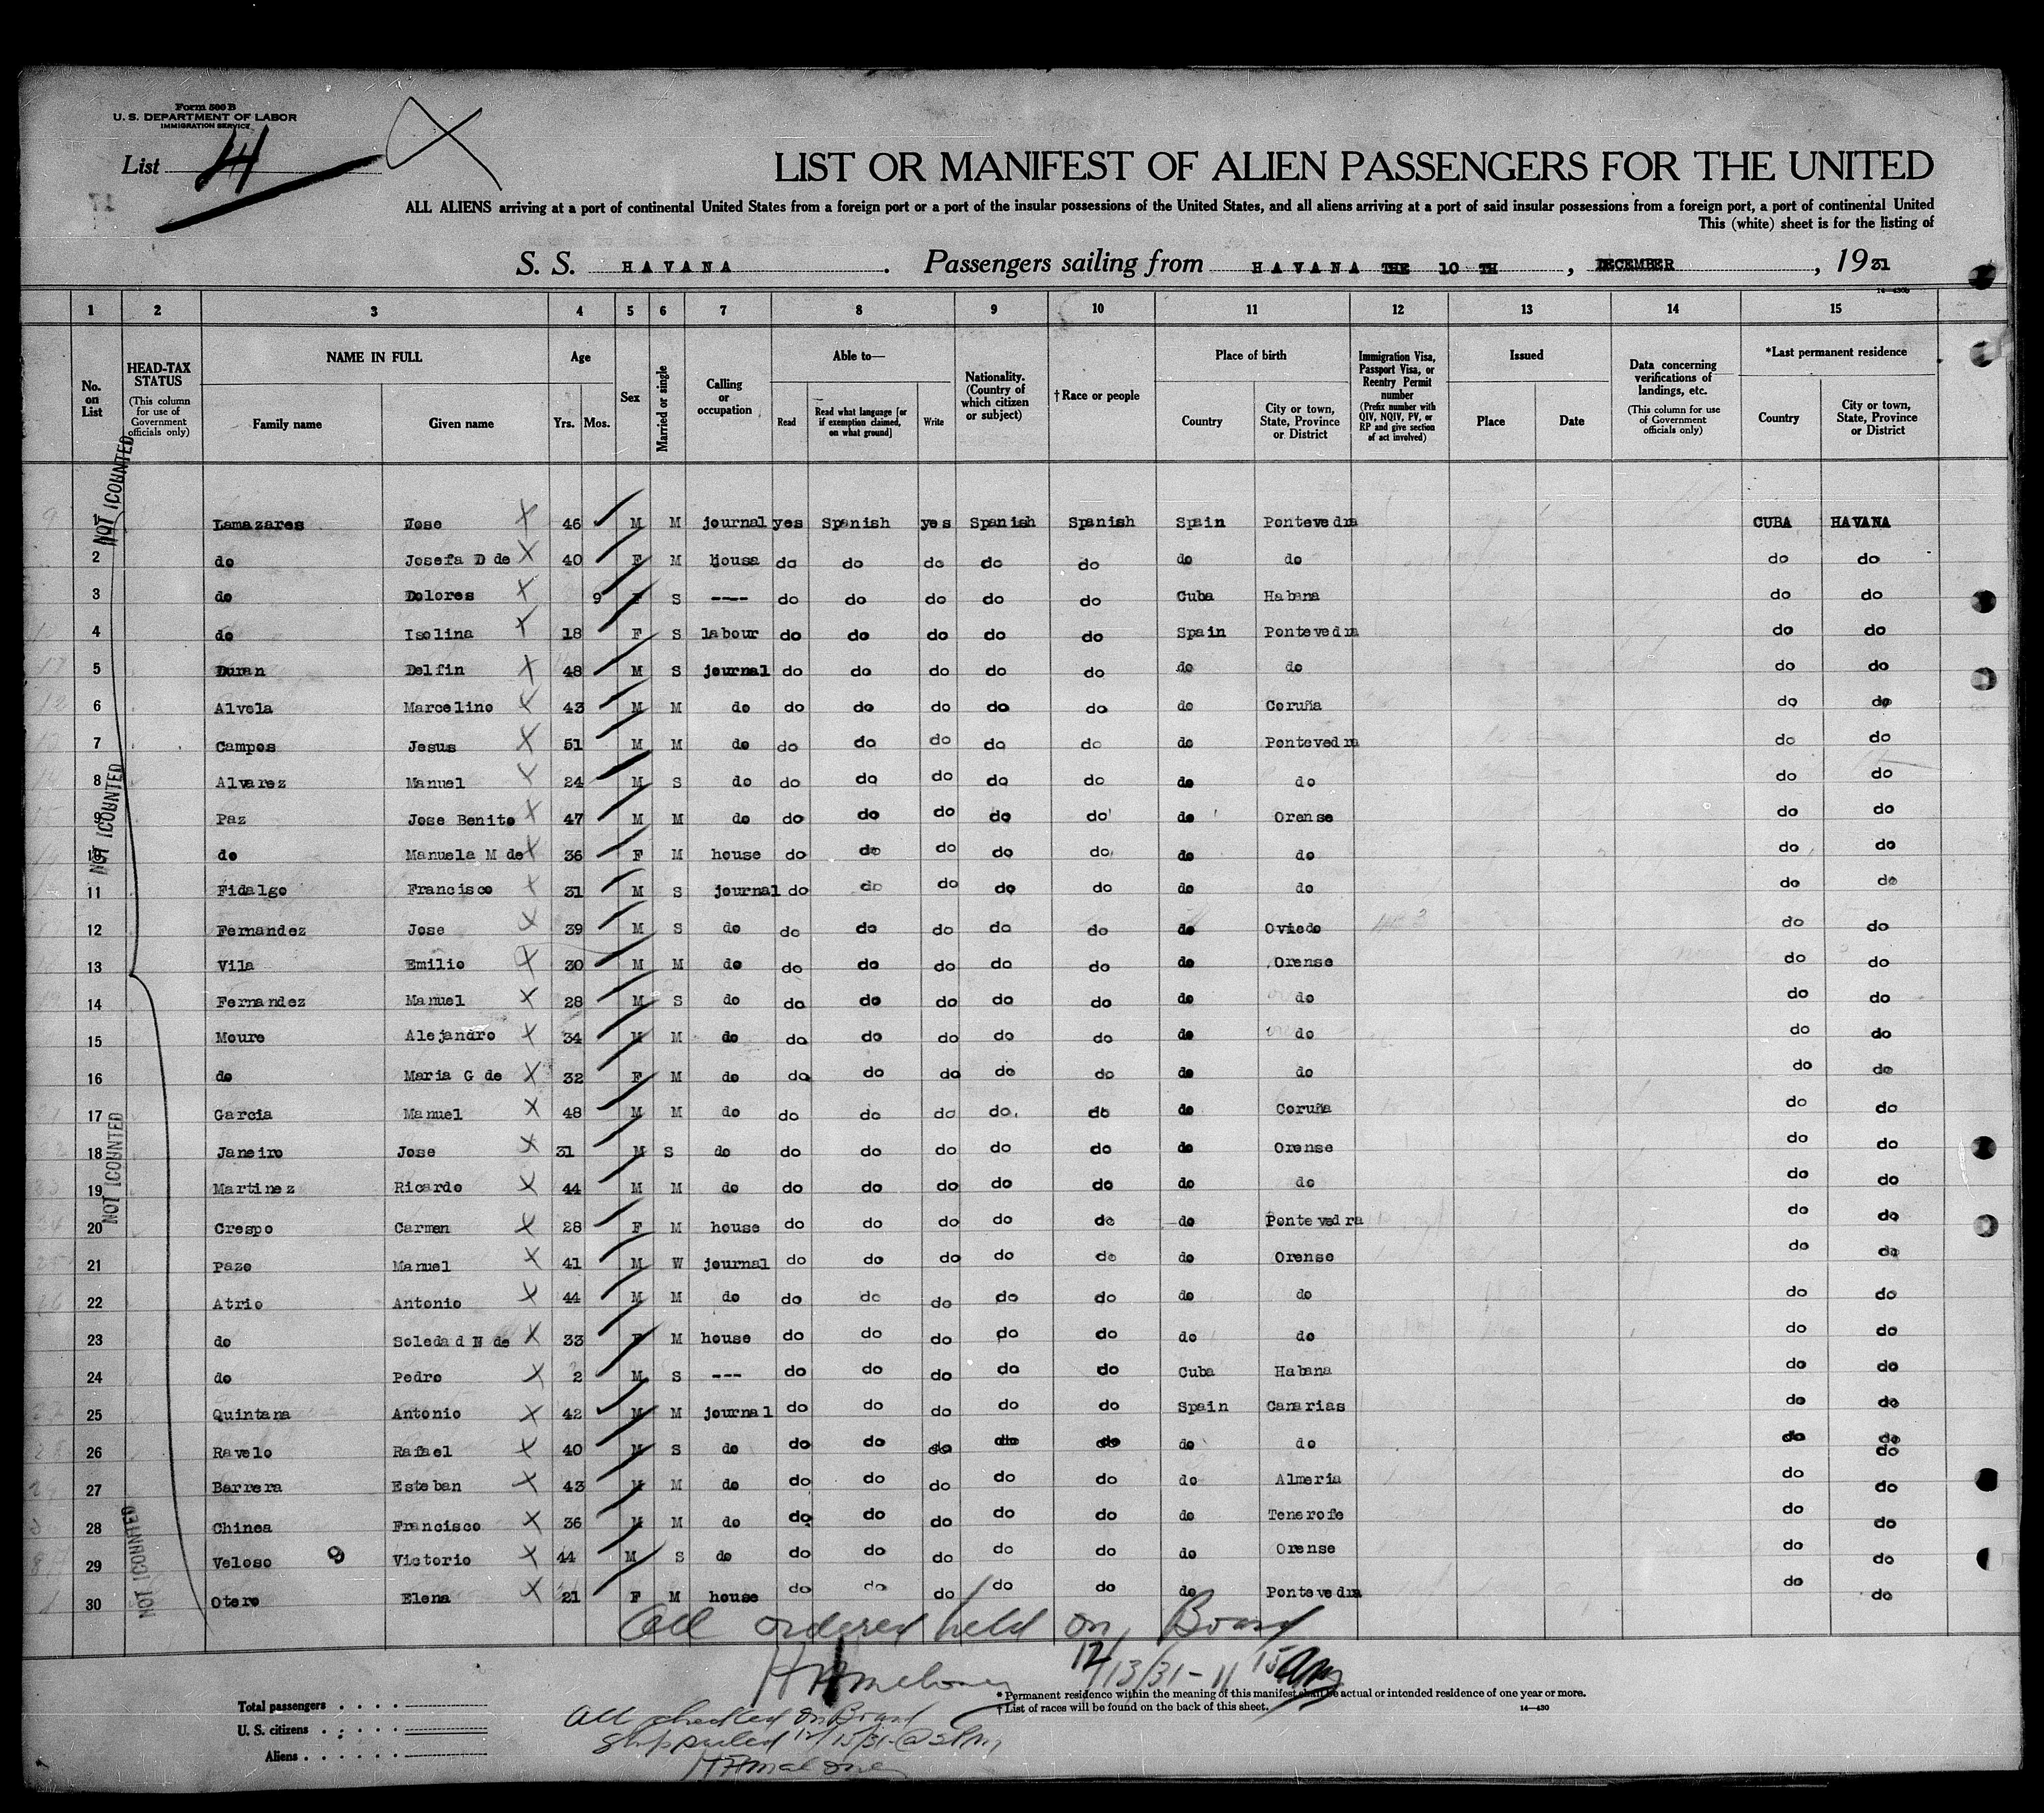 Form 500 B
U. S. DEPARTMENT OF LABOR
IMMIGRATION SERVICE
List 14
LIST OR MANIFEST OF ALIEN PASSENGERS FOR THE UNITED
ALL ALIENS arriving at a port of continental United States from a foreign port or a port of the insular possessions of the United States, and all aliens arriving at a port of said insular possessions from a foreign port, a port of continental United
This (white) sheet is for the listing of
S. S. HAVANA. Passengers sailing from HAVANA THE 10 TH, DECEMBER, 1931
1 2 3 4 5 6 7 8 9 10 11 12 13 14 15
No. on List
HEAD-TAX STATUS (This column for use of Government officials only)
NAME IN FULL Family name Given name
Age Yrs. Mos.
Sex
Married or single
Calling or occupation
Able to— Read Read what language [or if exemption claimed, on what ground] Write
Nationality. (Country of which citizen or subject)
† Race or people
Place of birth Country City or town, State, Province or District
Immigration Visa, Passport Visa, or Reentry Permit number (Prefix number with QIV, NQIV, PV, or RP and give section of act involved)
Issued Place Date
Data concerning verifications of landings, etc. (This column for use of Government officials only)
*Last permanent residence Country City or town, State, Province or District
NOT COUNTED
NOT COUNTED
NOT COUNTED
NOT COUNTED
1 Lamazares Jose X 46 M M journal yes Spanish yes Spanish Spanish Spain Pontevedra CUBA HAVANA
2 do Josefa D de X 40 F M housa do do do do do do do do do
3 do Dolores X 9 F S ---- do do do do do Cuba Habana do do
4 do Isolina X 18 F S labour do do do do do Spain Pontevedra do do
5 Duran Delfin X 48 M S journal do do do do do do do do do
6 Alvela Marcelino X 43 M M do do do do do do do Coruña do do
7 Campos Jesus X 51 M M do do do do do do do Pontevedra do do
8 Alvarez Manuel X 24 M S do do do do do do do do do do
9 Paz Jose Benito X 47 M M do do do do do do do Orense do do
10 do Manuela M de X 36 F M house do do do do do do do do do
11 Fidalgo Francisco X 31 M S journal do do do do do do do do do
12 Fernandez Jose X 39 M S do do do do do do do Oviedo do do
13 Vila Emilio X 30 M M do do do do do do do Orense do do
14 Fernandez Manuel X 28 M S do do do do do do do do do do
15 Moure Alejandro X 34 M M do do do do do do do do do do
16 do Maria G de X 32 F M do do do do do do do do do do
17 Garcia Manuel X 48 M M do do do do do do do Coruña do do
18 Janeiro Jose X 31 M S do do do do do do do Orense do do
19 Martinez Ricardo X 44 M M do do do do do do do do do do
20 Crespo Carmen X 28 F M house do do do do do do Pontevedra do do
21 Pazo Manuel X 41 M W journal do do do do do do Orense do do
22 Atrio Antonio X 44 M M do do do do do do do do do do
23 do Soledad N de X 33 F M house do do do do do do do do do
24 do Pedro X 2 M S --- do do do do do Cuba Habana do do
25 Quintana Antonio X 42 M M journal do do do do do Spain Canarias do do
26 Ravelo Rafael X 40 M S do do do do do do do do do do do
27 Barrera Esteban X 43 M M do do do do do do do Almeria do do
28 Chinea Francisco X 36 M M do do do do do do do Tenerofe do do
29 Veloso Victorio X 44 M S do do do do do do do Orense do do
30 Otero Elena X 21 F M house do do do do do do Pontevedra do do
All ordered held on Board
12/13/31 - 11 15 am
Total passengers
* Permanent residence within the meaning of this manifest shall be actual or intended residence of one year or more.
† List of races will be found on the back of this sheet.
14—430
U. S. citizens
Aliens
All checked on Board
12/15/31